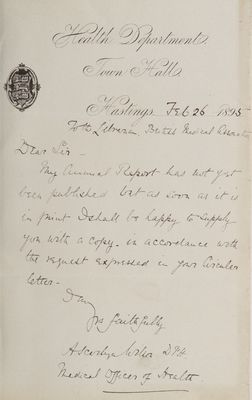 Health Department
Town Hall
Hastings Feb 26 1895
To the Librarian British Medical Association
Dear Sir
My Annual Report has not yet
been published but as soon as it is
in print I shall be happy to supply
you with a copy - in accordance with
the request expressed in your Circular
letter -
I am
yrs faithfully
A Scarlyn Wilson DPH
Medical Officer of Health